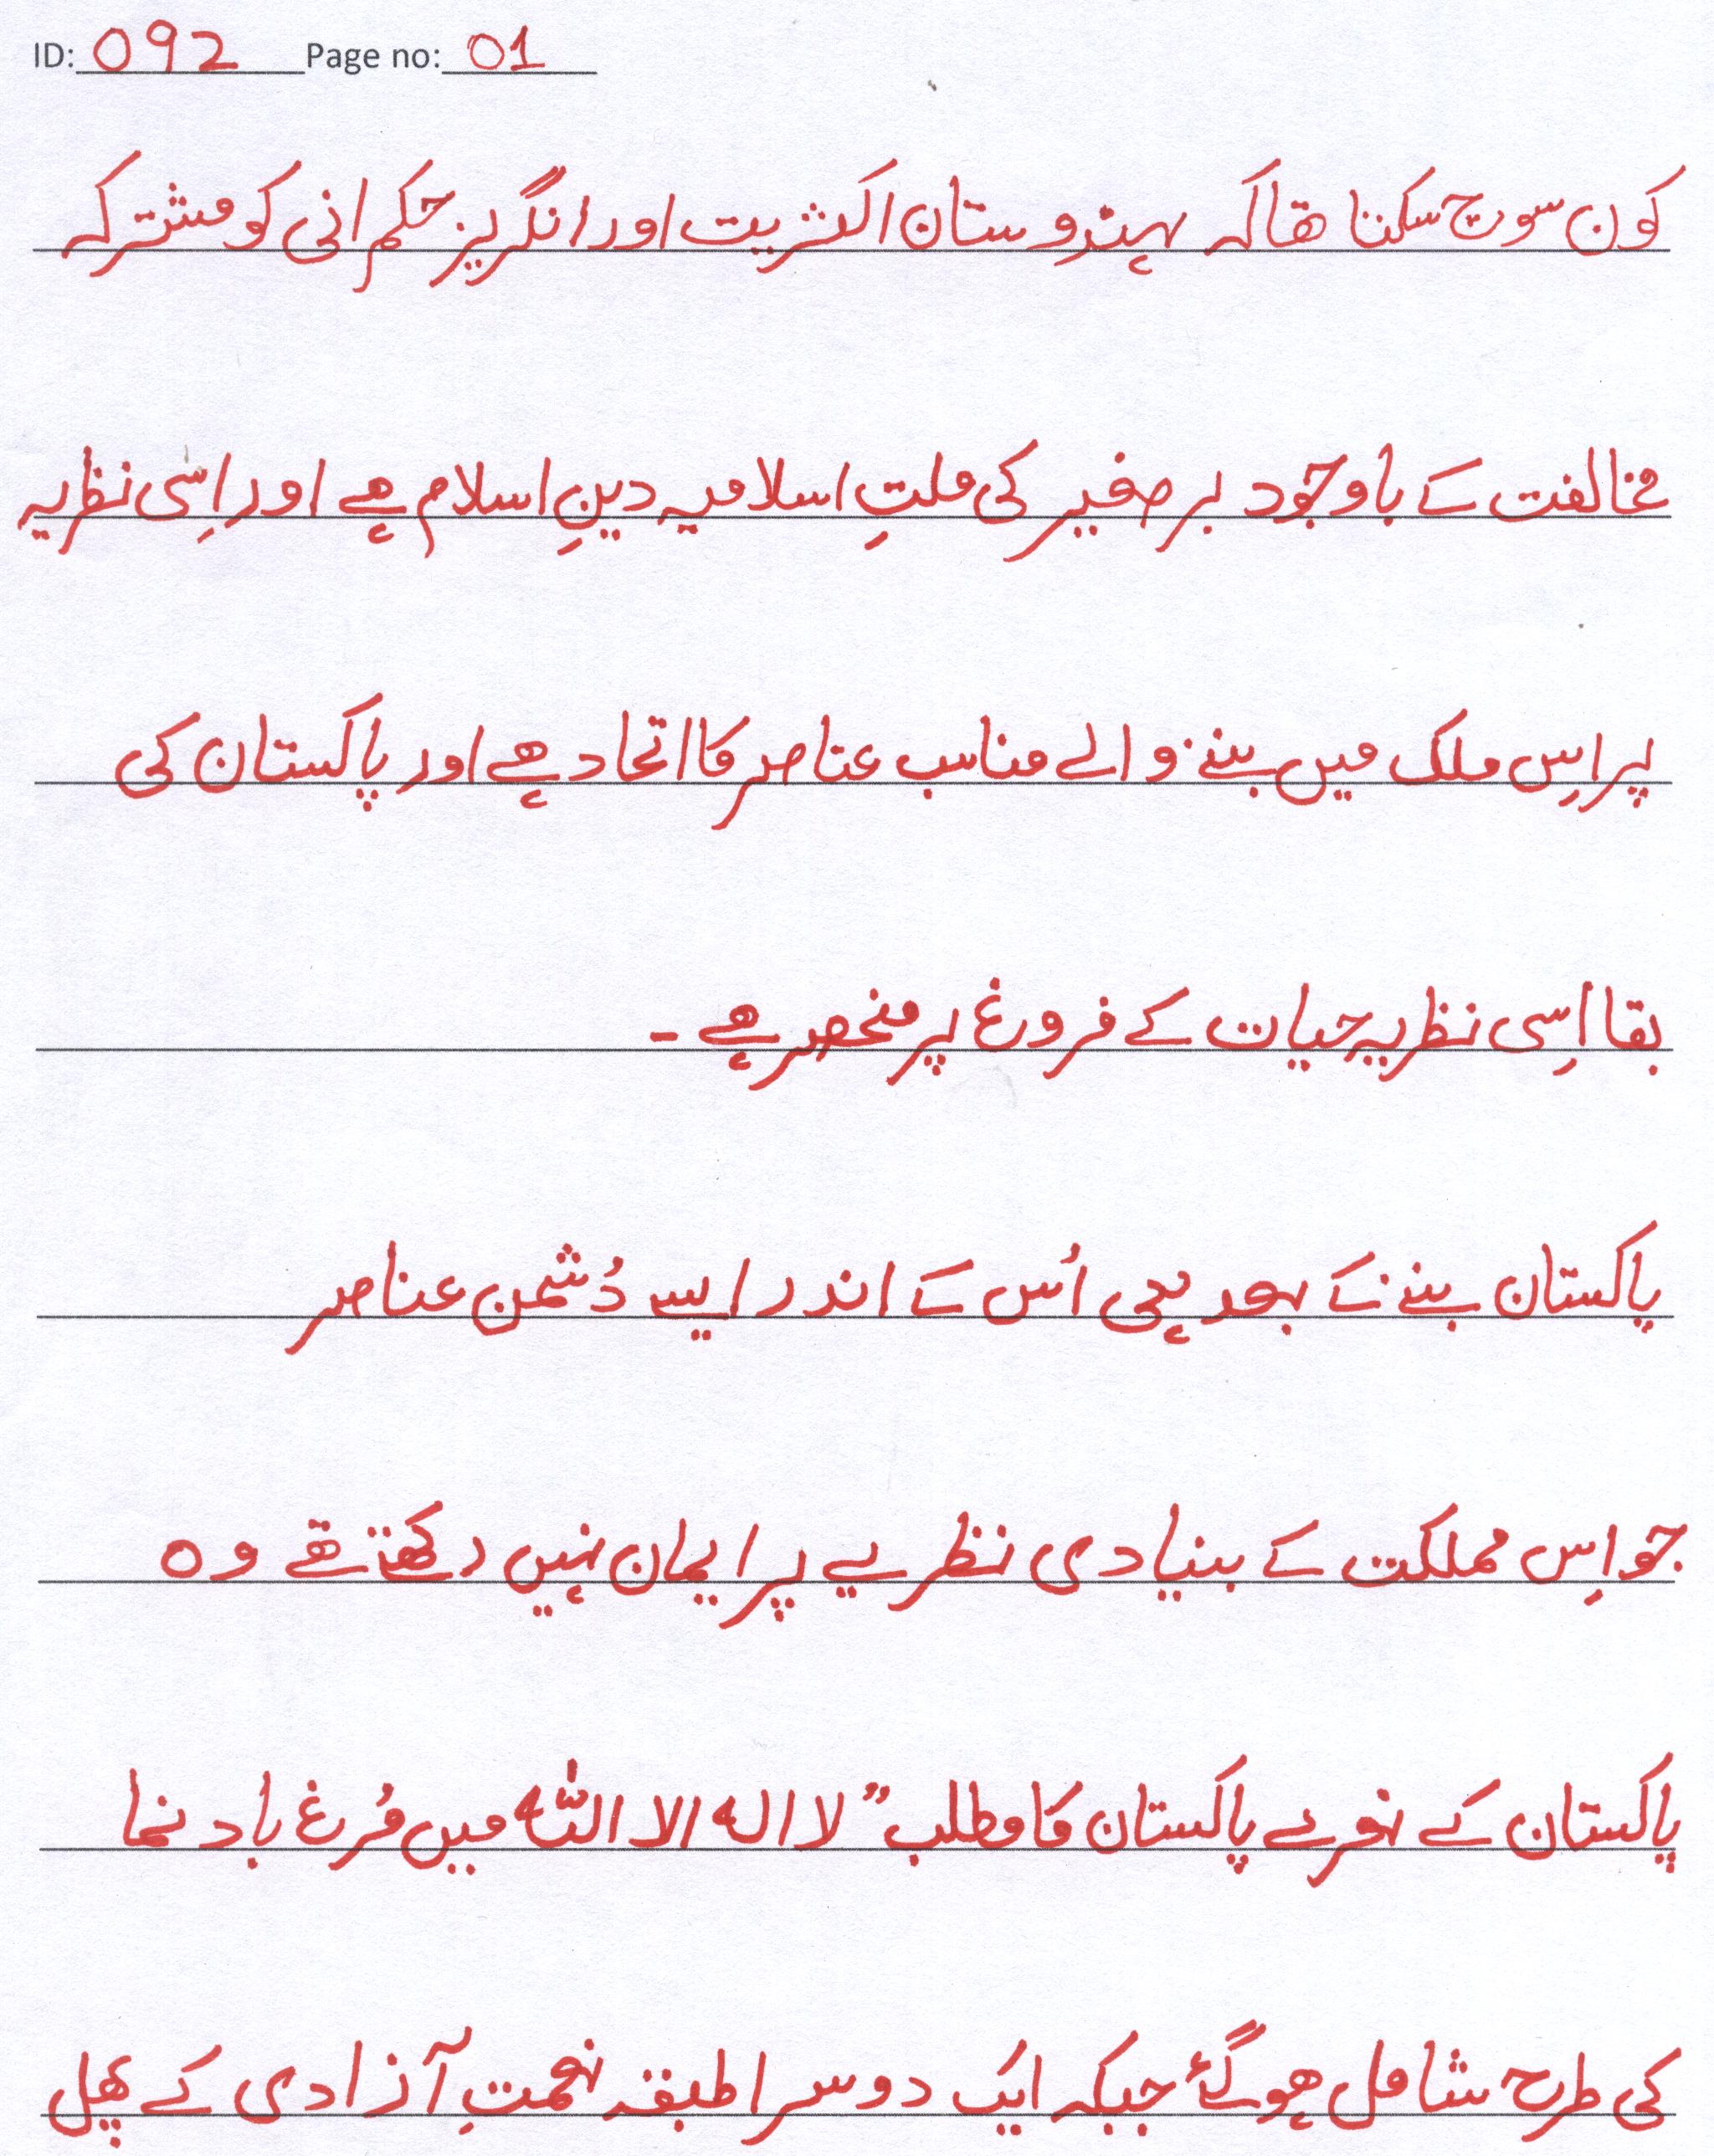 ID: 092 Page no: 01
کون سوچ سکتا تھا کہ ہندوستان اکثریت اور انگریز حکمرانی کو مشترکہ
مخالفت کے باوجود برصغیر کی ملتِ اسلامیہ دینِ اسلام ہے اور اِسی نظریہ
پر اِس ملک میں بسنے والے مناسب عناصر کا اتحاد ہے اور پاکستان کی
بقا اِسی نظریہ حیات کے فروغ پر منحصر ہے ۔
پاکستان بننے کے بعد بھی اُس کے اندر ایسے دُشمن عناصر
جو اِس مملکت کے بنیادی نظریے پر ایمان نہیں رکھتے تھے وہ
پاکستان کے نعرے پاکستان کا مطلب " لا الہ الا اللّٰہ میں مُرغ باد نما
کی طرح شامل ہو گئے جبکہ ایک دوسرا طبقہ نعمتِ آزادی کے پھل